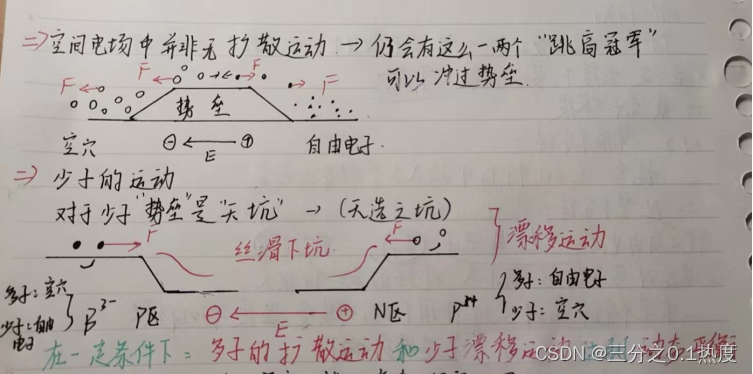 ⇒ 空间电场中并非无扩散运动 → 仍会有这么一两个 "跳高冠军"
可以冲过势垒.
F F F
势垒
空穴 ⊖ ← ⊕ 自由电子.
E
⇒ 少子的运动
对于少子"势垒"是"天坑" → (天选之坑)
F 丝滑下坑 F 漂移运动
多子: 空穴 多子: 自由电子
少子: 自由电子 B³⁻ P区 ⊖ ← ⊕ N区 少子: 空穴
E
在一定条件下: 多子的扩散运动和少子漂移运动
CSDN @三分之0.1热度